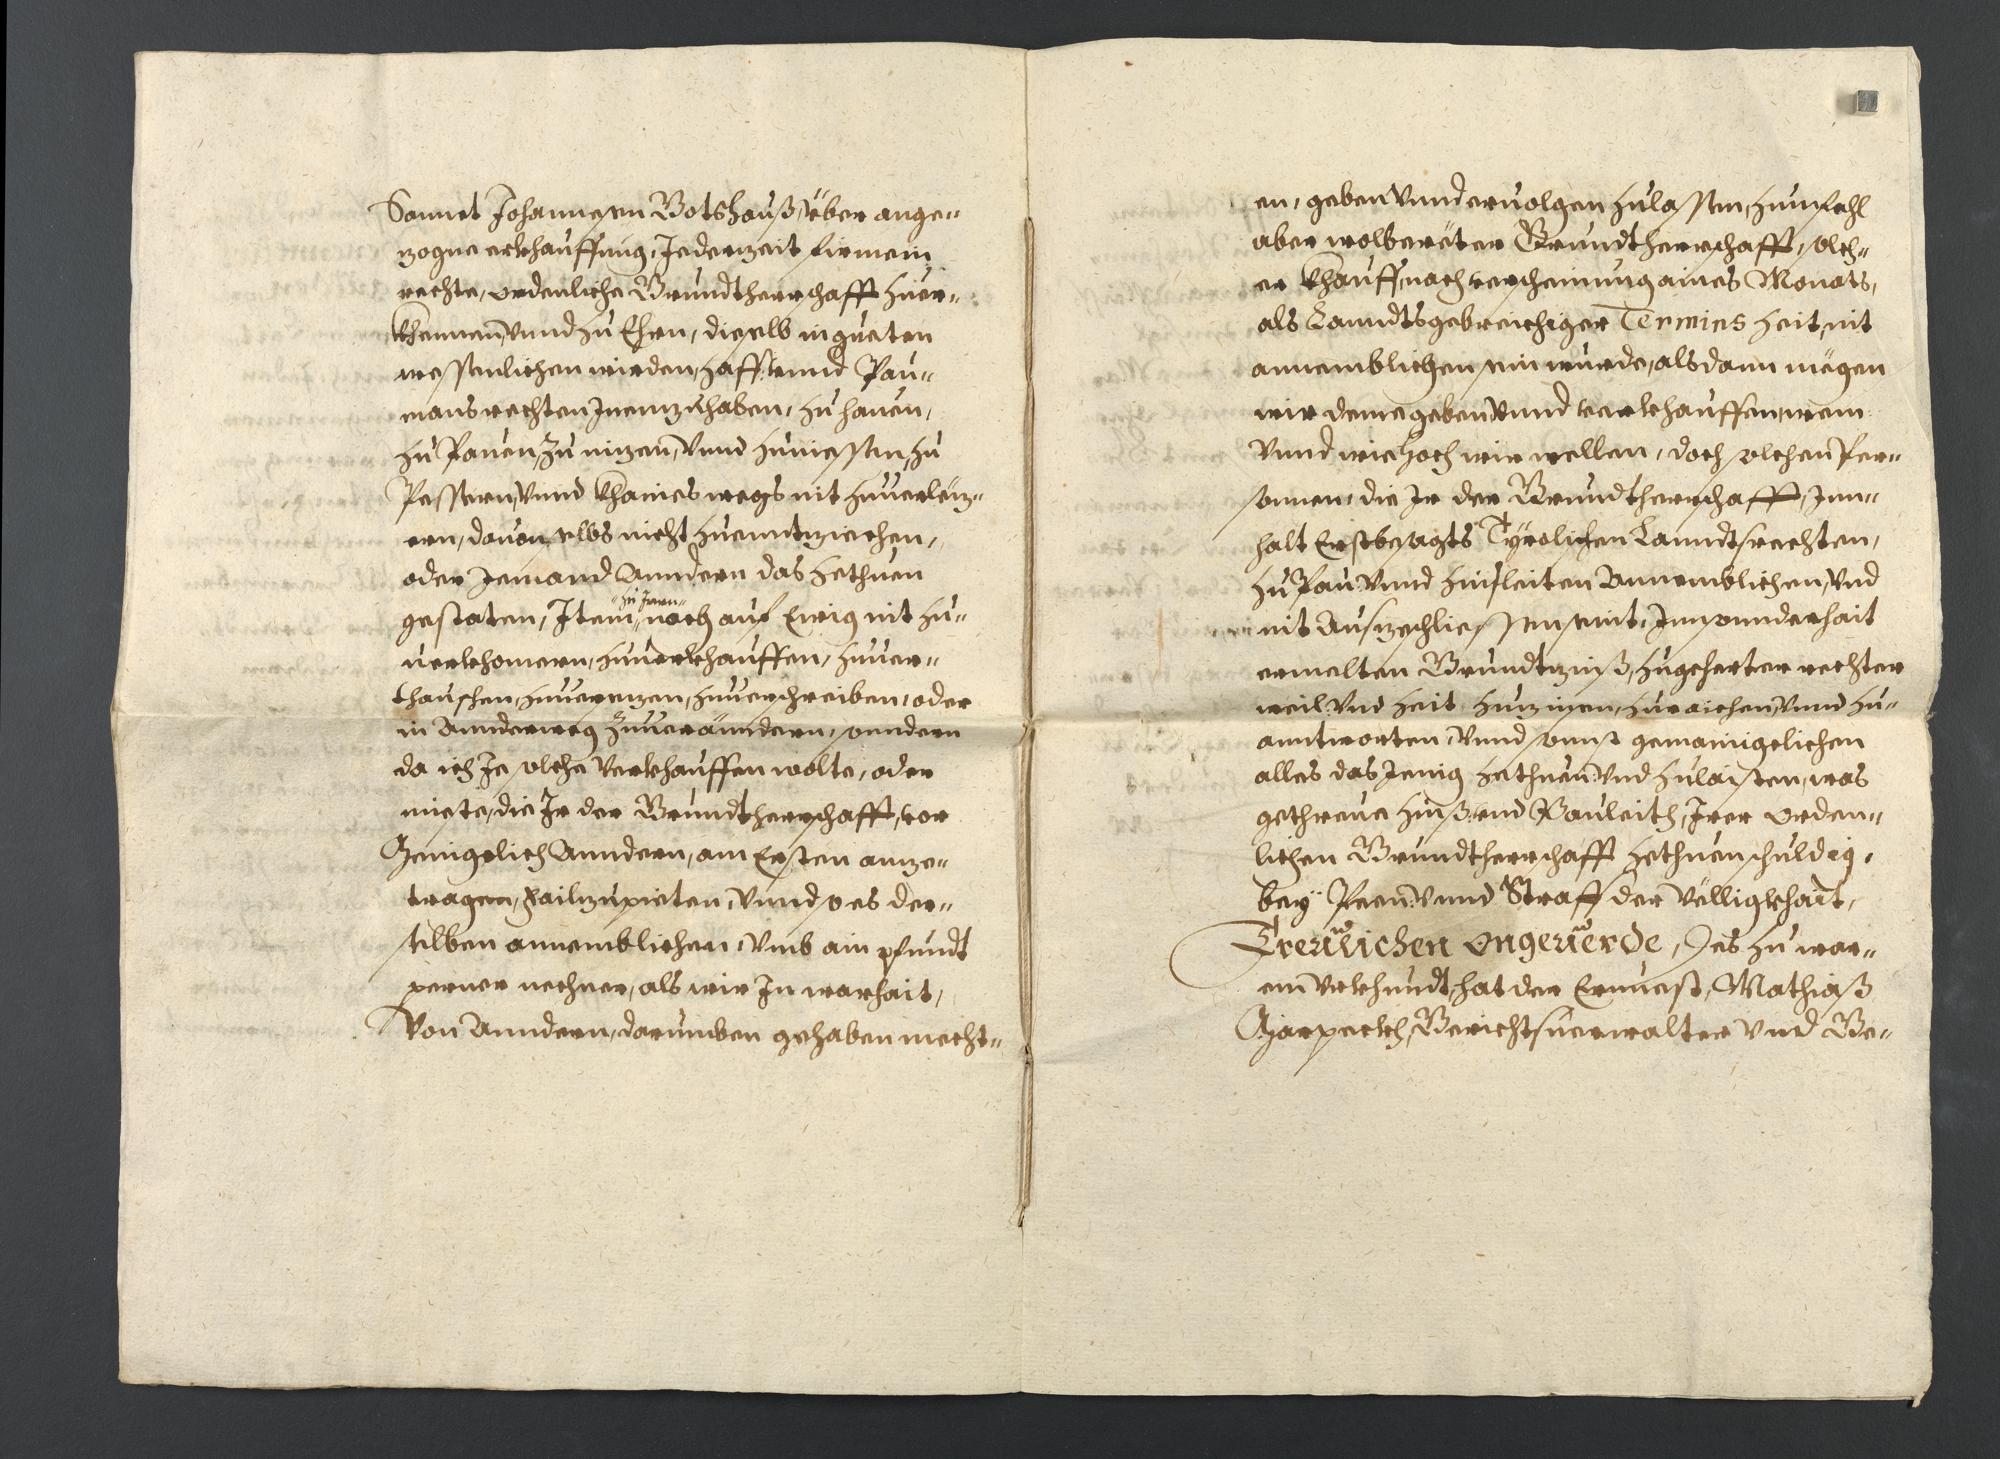 Sannct Johannesen Gotshauß, über ange-
zogne erkhauffung, Jederzeit für mein
rechte, ordenliche Grundtherrschafft zuer-
khennen, vnnd zu Ehrn, dieselb in gueten
wessenlichen wirden, hafft vnnd Pau-
mans rechten Innenzuhaben, zu hauen,
zu Pauen, zu nizen, vnnd zuniessen, zu
Pessern, vnnd khaines wegs nit zuuerlez-
ern, dauon selbs nicht zuenntziechen,
oder Jemand Anndern das zethuen
gestaten, Item "zu Jrem" noch auf Ewig nit zu-
uerkhomern, zuuerkhauffen, zuuer-
thauschen, zuuersezen, zuuerschreiben, oder
in Annderweg zuuerändern, sonndern
da ich Je solche Verkhauffen wolte, oder
mieste, die Ir der Grundtherrschafft, vor
Menigelich Anndern, am Ersten anze-
tragen, Failzupieten, vnnd so es der-
selben annemblichen, vmb ain pfundt
perner nechner, als wir In warhait,
Von Anndern, darumben gehaben mecht-
en, geben vnnd eruolgen zulassen, zum fahl
aber wolberüeter Grundtherrschafft, solch-
er Khauff, nach verscheinung aines Monats,
als Lanndtsgebreichiger Termins Zeit, nit
annemblichen sein wurde, alsdann mügen
wir deme geben vnnd verkhauffen, wem
vnnd wie hoch wir wellen, doch solchen Per-
sonnen, die Ir der Grundtherrschafft, Inn-
halt Erstbesagts Tyrolischen Lanndtsrechten,
zu Pau vnnd Zinsleiten Annemblichen, vnd
nit Auszeschliessen seint, Innsonnderhait
ermelten Grundtzinß, zugeherter rechter
weil vnd Zeit zuzinsen, zuraichen, vnnd zu-
anntworten, vnnd sonnst gemainigelichen
alles das Jenig zethuen, vnd zulaisten, was
gethreue Zinß vnd Pauleith, Irer orden-
lichen Grundtherrschafft zethuen schuldig,
bey Peen vnnd Straff der völligkhait,
Treuwlichen ongeuerde, Des zu war-
em vrkhundt, hat der Ernuest, Mathiaß
Gerichtsuerwalter vnd Ge-